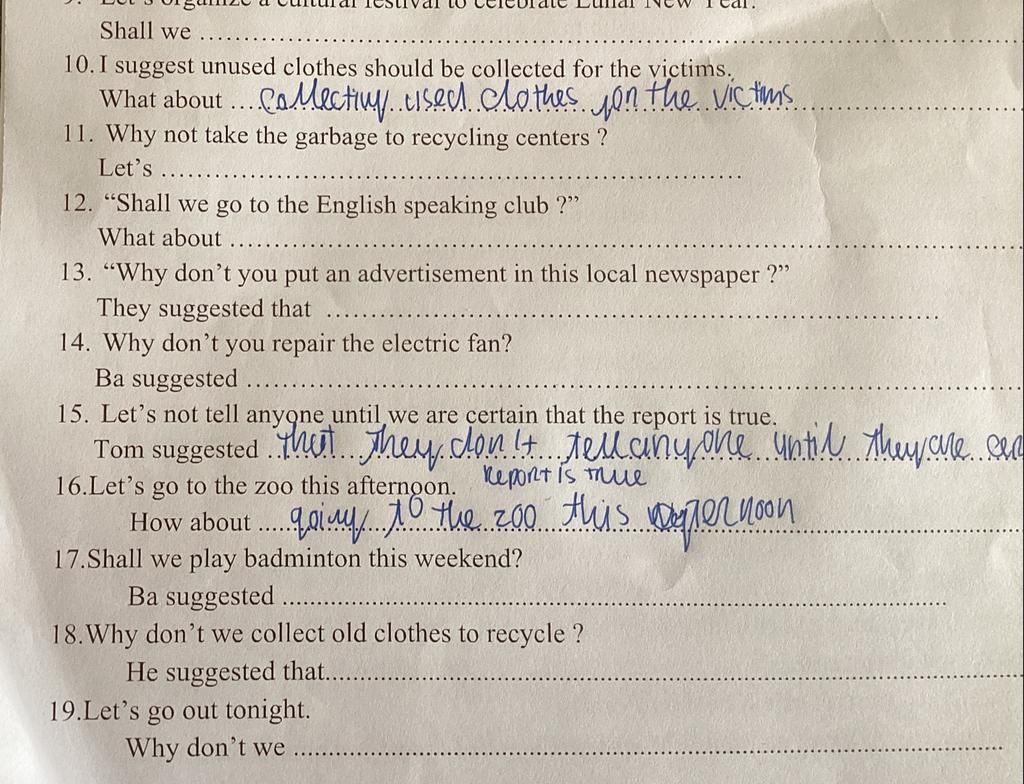 9. Let's organize a cultural festival to celebrate Lunar New Year.
Shall we ................................................
10. I suggest unused clothes should be collected for the victims.
What about ... collecting used clothes for the victims
11. Why not take the garbage to recycling centers ?
Let's ................................................
12. “Shall we go to the English speaking club ?”
What about ................................................
13. “Why don't you put an advertisement in this local newspaper ?”
They suggested that ................................................
14. Why don't you repair the electric fan?
Ba suggested ................................................
15. Let's not tell anyone until we are certain that the report is true.
Tom suggested .. that they don't tell anyone until they are
report is true
16.Let's go to the zoo this afternoon.
How about .... going to the zoo this afternoon
17.Shall we play badminton this weekend?
Ba suggested ................................................
18.Why don't we collect old clothes to recycle ?
He suggested that................................................
19.Let's go out tonight.
Why don't we ................................................